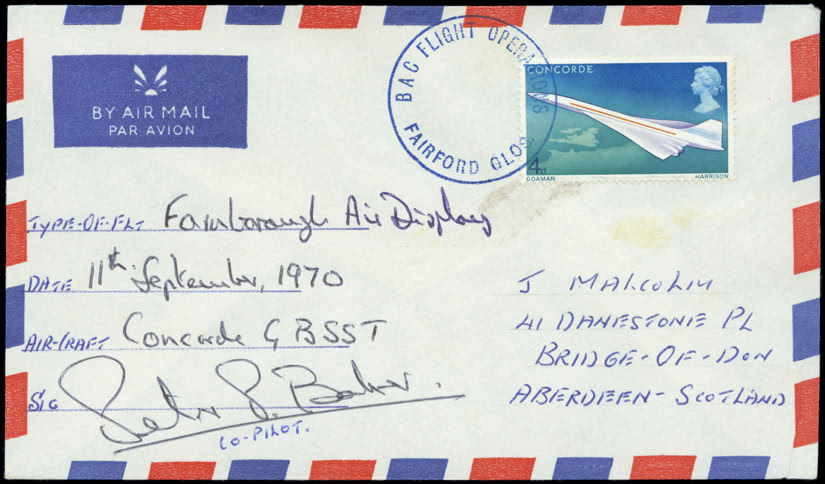 BY AIR MAIL
PAR AVION
BAC FLIGHT OPERATIONS
FAIRFORD GLOS.
CONCORDE
4d
GOAMAN
HARRISON
TYPE-OF-FLT Farnborough Air Display
DATE 11th September, 1970
AIR-CRAFT Concorde G BSST
SIG Peter J. Baker.
CO-PILOT.
J MALCOLM
41 DANESTONE PL
BRIDGE-OF-DON
ABERDEEN-SCOTLAND